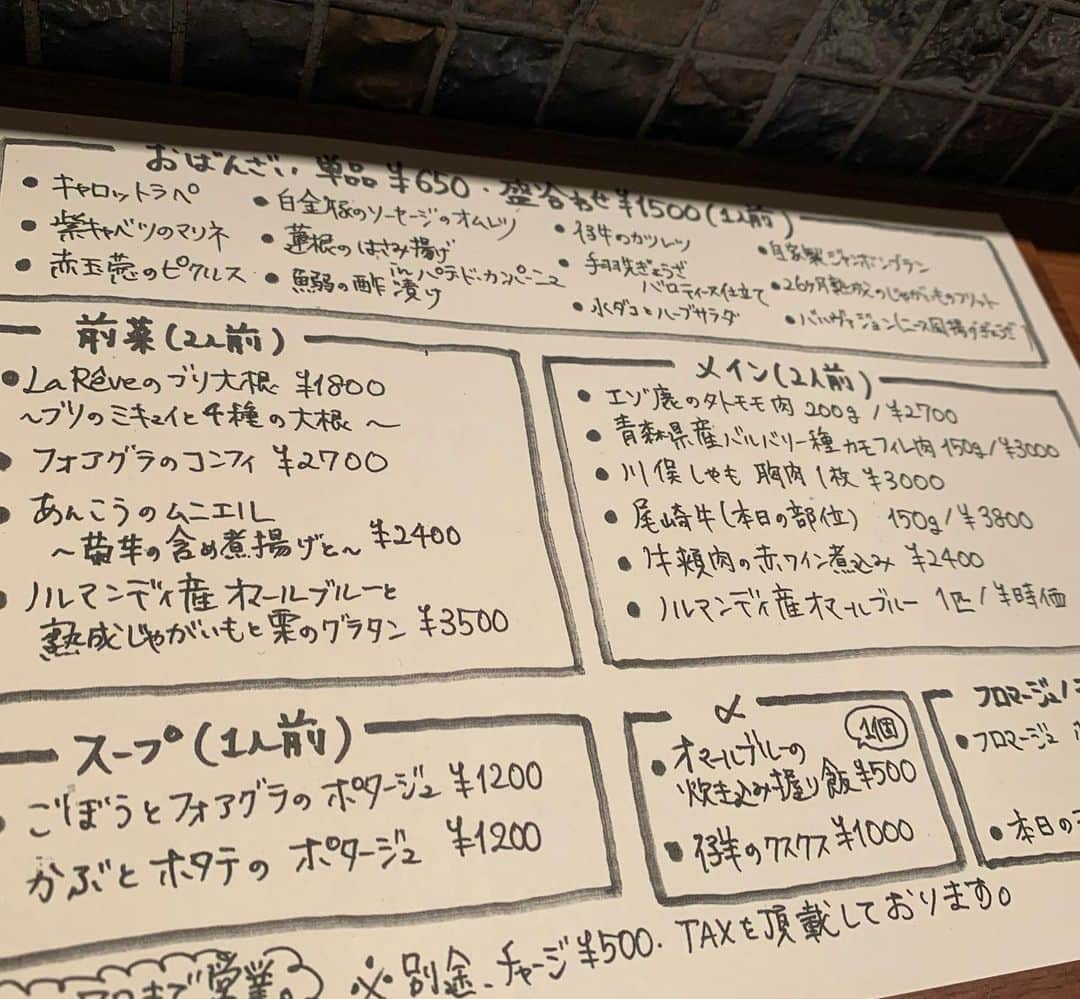 おばんざい 単品 ¥650・盛合わせ ¥1500(1人前)
• キャロットラペ
• 紫キャベツのマリネ
• 赤玉葱のピクルス
• 白金豚のソーセージのオムレツ
• 蓮根のはさみ揚げ
in パテ・ド・カンパーニュ
• 鰯の酢漬け
• 仔牛のカツレツ
• 手羽先ぎょうざ
バロティーヌ仕立て
• 水ダコとハーブサラダ
• 自家製ジャンボンブラン
• 26ヶ月熟成のじゃがいものフリット
• バルバジョン(ニース風揚げぎょうざ)
前菜(2人前)
• La Rêveのブリ大根 ¥1800
〜ブリのミキュイと4種の大根〜
• フォアグラのコンフィ ¥2700
• あんこうのムニエル
〜菊芋の含め煮揚げと〜 ¥2400
• ノルマンディ産オマールブルーと
熟成じゃがいもと栗のグラタン ¥3500
メイン(2人前)
• エゾ鹿の外モモ肉 200g/¥2700
• 青森県産バルバリー種カモフィレ肉 150g/¥3000
• 川俣しゃも 胸肉 1枚 ¥3000
• 尾崎牛(本日の部位) 150g/¥3800
• 牛頬肉の赤ワイン煮込み ¥2400
• ノルマンディ産オマールブルー 1匹/¥時価
スープ(1人前)
• ごぼうとフォアグラのポタージュ ¥1200
かぶとホタテのポタージュ ¥1200
α
1個
• オマールブルーの
炊き込み握り飯 ¥500
• 仔羊のクスクス ¥1000
フロマージュ/
• フロマージュ
• 本日の
まで営業。
※別途、チャージ¥500・TAXを頂戴しております。